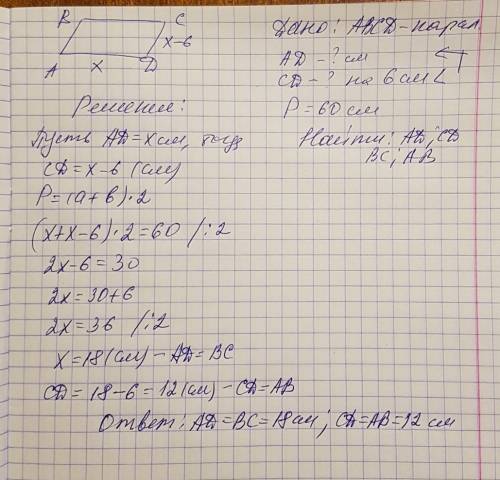 B C
x-6
A x D
Дано: ABCD-парал.
AD - ? см
CD - ? на 6 см <
P = 60 см
Найти: AD; CD
BC; AB
Решение:
Пусть AD = x см, тогд
CD = x-6 (см)
P = (a+b)·2
(x+x-6)·2=60 /:2
2x-6=30
2x=30+6
2x=36 /:2
x=18 (см) - AD=BC
CD= 18-6=12 (см) - CD=AB
Ответ: AD=BC=18см; CD=AB=12 см